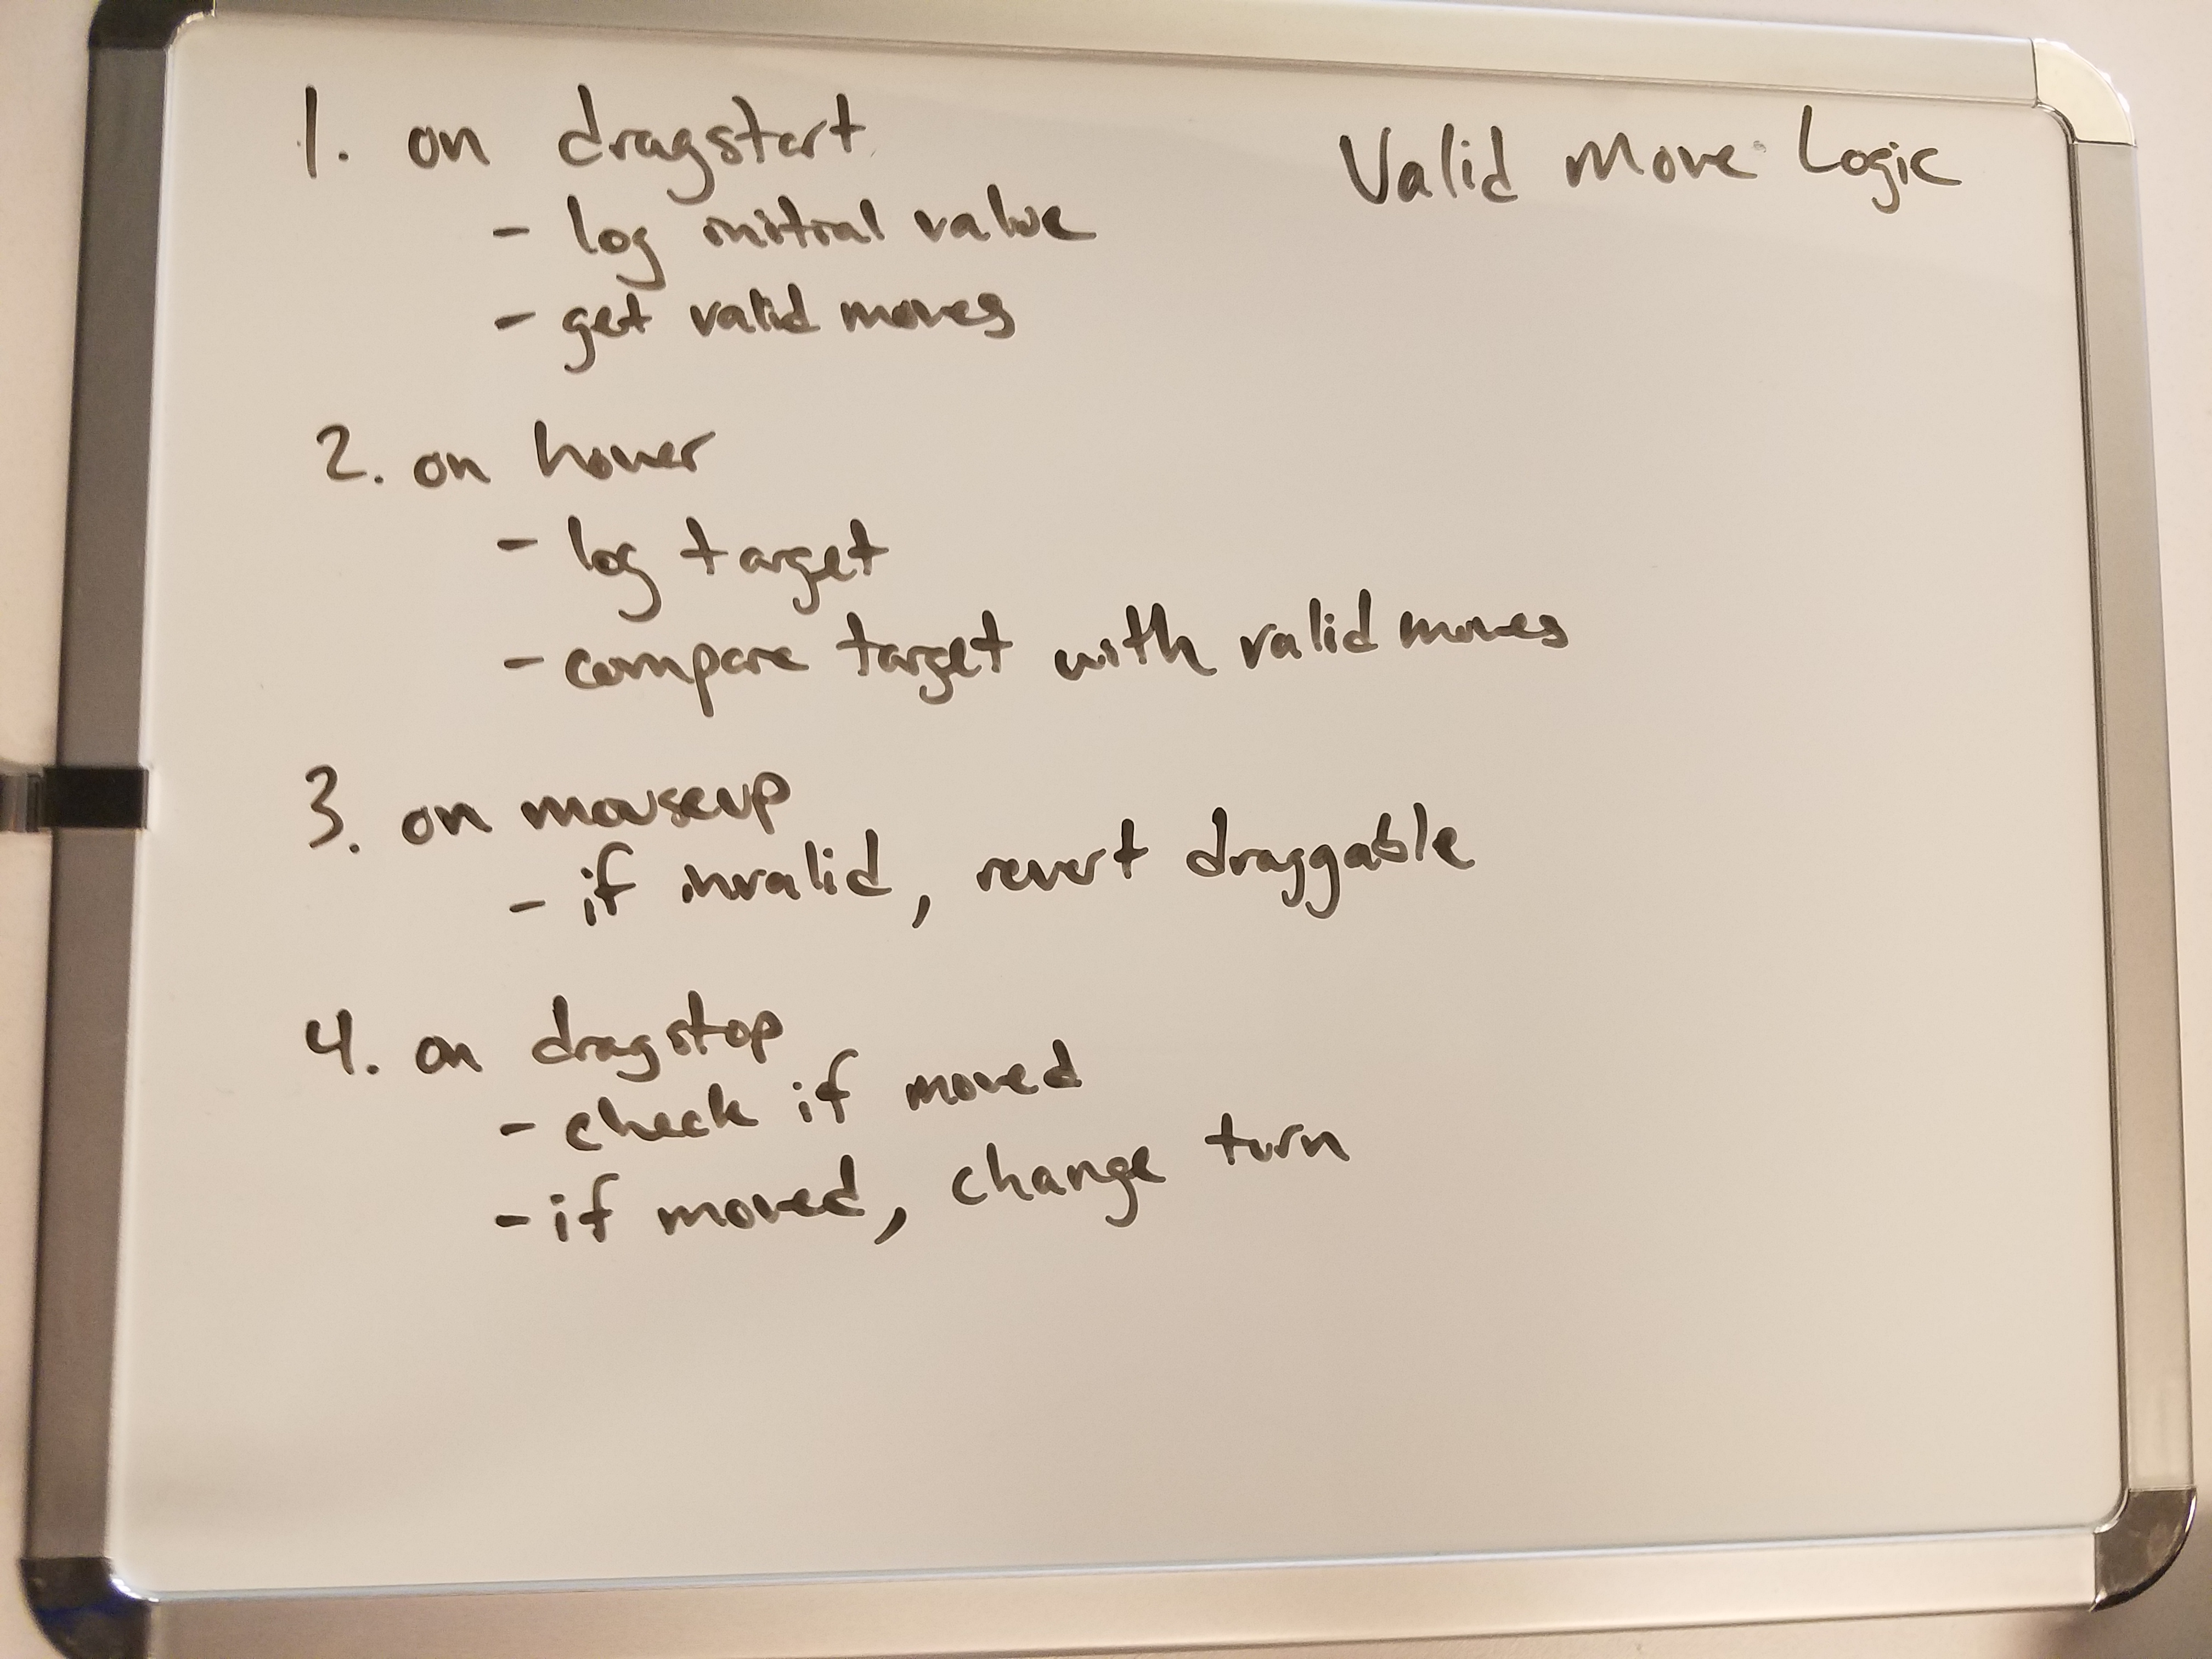 Valid Move Logic
1. on dragstart
- log initial value
- get valid moves
2. on hover
- log target
- compare target with valid moves
3. on mouseup
- if invalid, revert draggable
4. on dragstop
- check if moved
- if moved, change turn